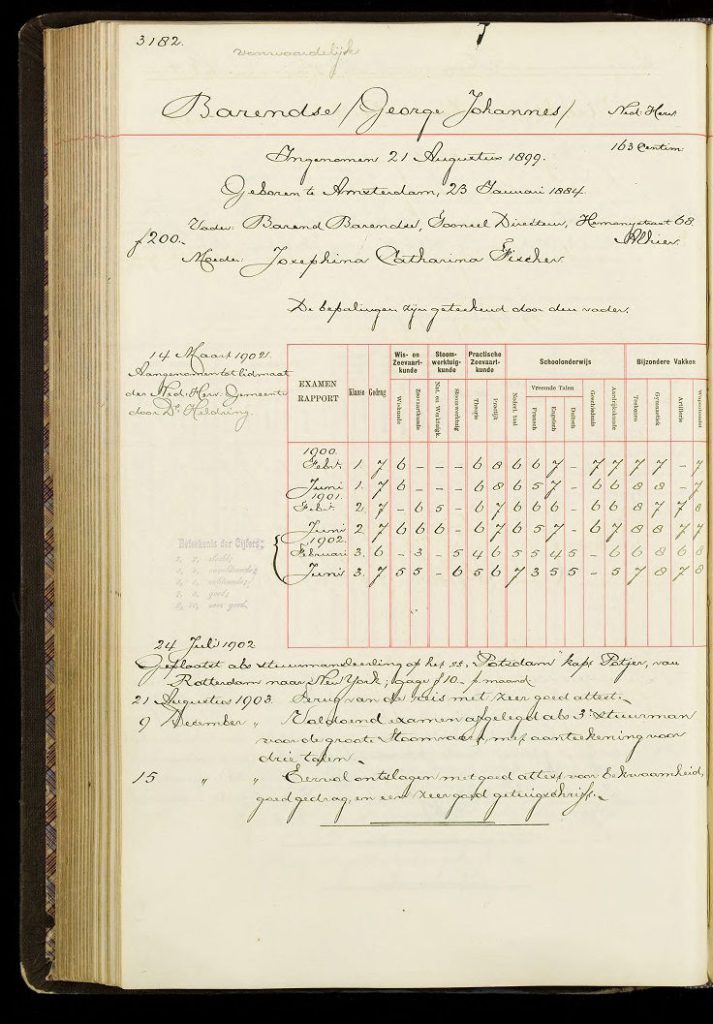 3182.
7
voorwaardelijk
Barendse (George Johannes)
Ned: Herv.
163 Centim:
Ingenomen 21 Augustus 1899.
Geboren te Amsterdam, 23 Januari 1884.
Vader: Barend Barendse, Tooneel Directeur, Hemonystraat 68.
Alhier.
ƒ200.-
Moeder: Josephina Catharina Fischer.
De bepalingen zijn geteekend door den vader.
14 Maart 1902.
Aangenomen tot lidmaat
der Ned: Herv: Gemeente
door Ds. Heldring.
EXAMEN RAPPORT
Klasse
Gedrag
Wis- en Zeevaartkunde
Stoomwerktuigkunde
Practische Zeevaartkunde
Schoolonderwijs
Bijzondere Vakken
Wiskunde
Zeevaartkunde
Nat. en Werktuigk.
Stoomwerktuig
Theorie
Practijk
Nederl. taal
Vreemde Talen
Fransch
Engelsch
Duitsch
Geschiedenis
Aardrijkskunde
Teekenen
Gymnastiek
Artillerie
1900.
Febr. 1. 7 6 - - - 6 8 6 6 7 - 7 7 7 7 - 7
Juni 1. 7 6 - - - 6 8 6 5 7 - 6 6 8 8 - 7
1901.
Febr. 2 7 - 6 5 - 6 7 6 6 6 - 6 6 8 7 7 8
Juni 2 7 6 6 6 - 6 7 6 5 7 - 6 7 8 8 7 7
1902.
Februari 3. 6 - 3 - 5 4 6 5 5 4 5 - 6 6 8 6 8
Juni 3. 7 5 5 - 6 5 6 7 3 5 5 - 5 7 8 7 8
Beteekenis der Cijfers:
24 Juli 1902
Geplaatst als stuurmansleerling op het ss. "Potsdam" kapt Potjer, van
Rotterdam naar New York; gage ƒ10.- p maand.
21 Augustus 1903. Terug van de reis met zeer goed attest.
9 December " Voldoend examen afgelegd als 3e stuurman
voor de groote Stoomvaart, met aanteekening voor
drie talen.
15 " " Eervol ontslagen met goed attest voor bekwaamheid,
goed gedrag, en een zeer goed getuigschrift.